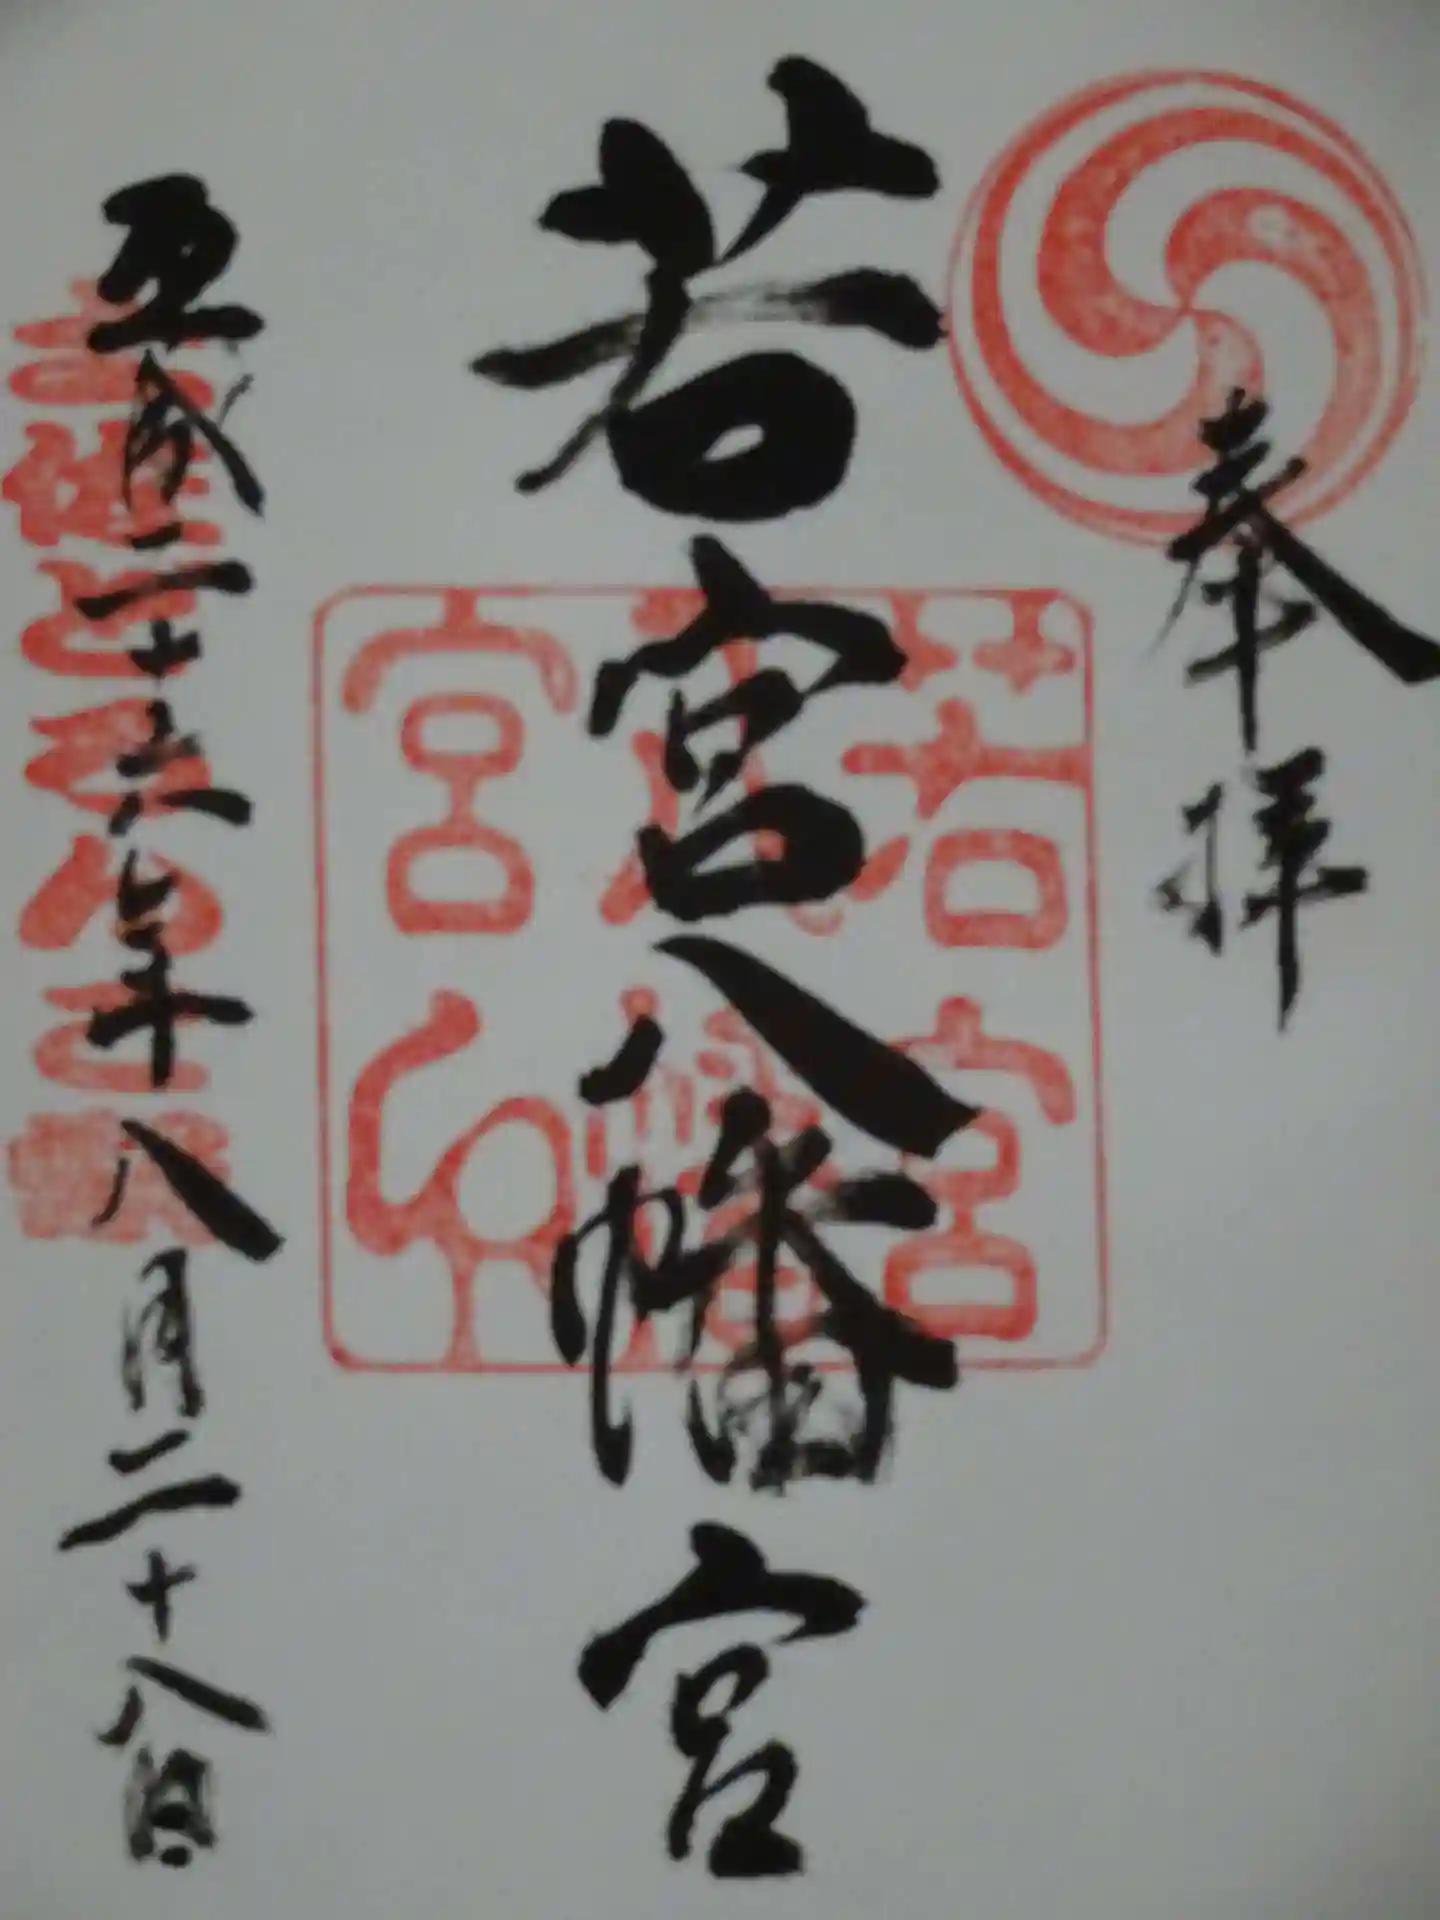 奉拝
若宮八幡宮
若宮八幡宮印
平成二十六年八月二十八日